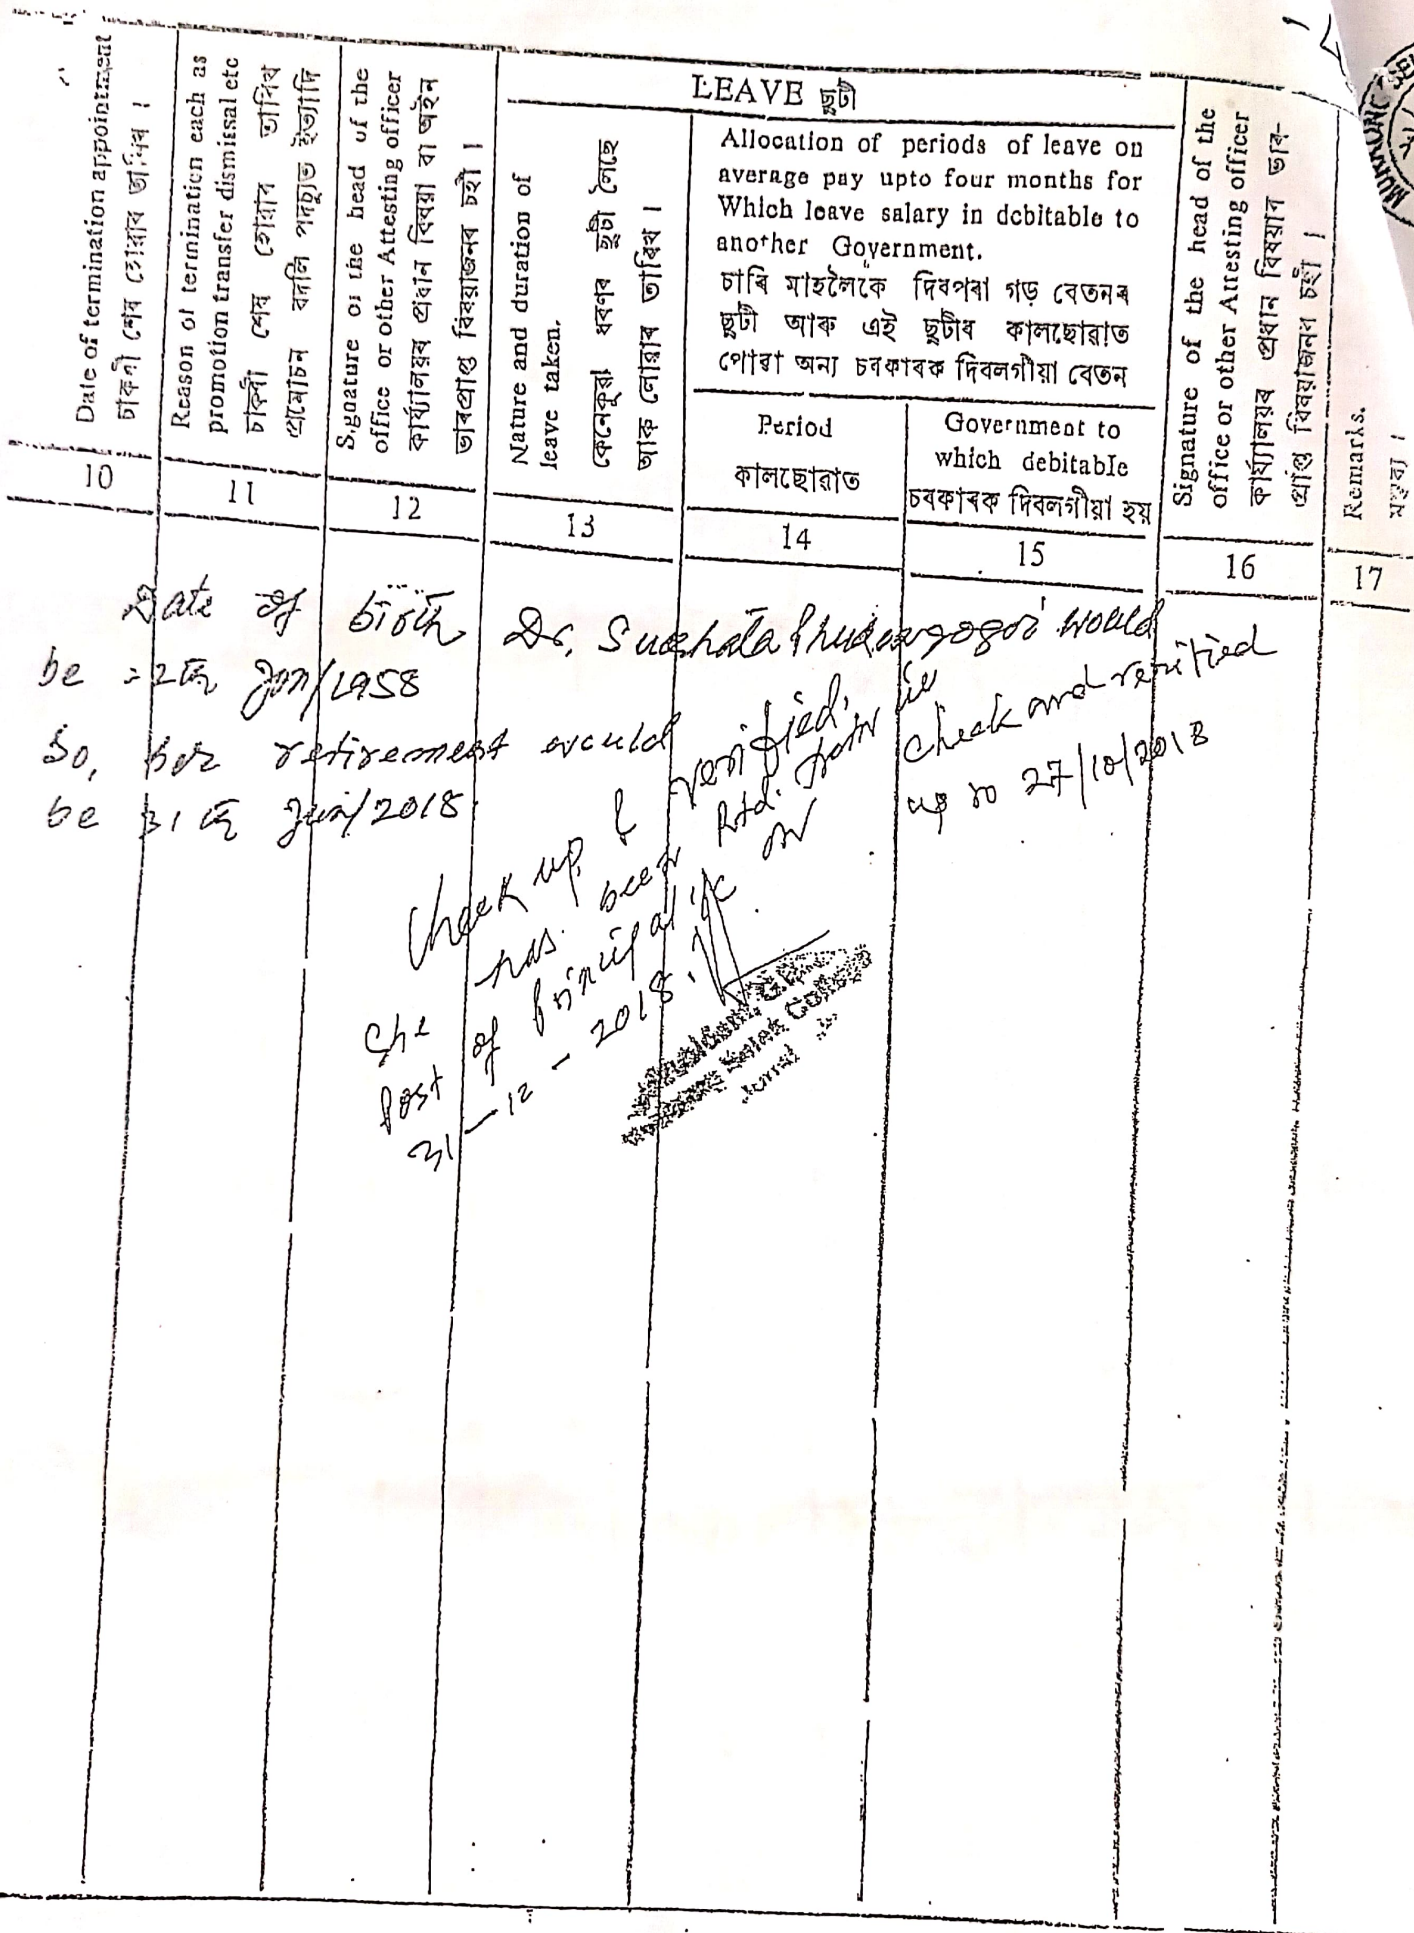 Date of termination appointment
চাকৰী শেষ হোৱাৰ তাৰিখ ।
Reason of termination each as
promotion transfer dismissal etc
চাকৰী শেষ হোৱাৰ তাৰিখ
প্ৰমোচন বদলি পদচ্যুত ইত্যাদি
Signature of the head of the
office or other Attesting officer
কাৰ্য্যালয়ৰ প্ৰধান বিষয়া বা অইন
ভাৰপ্ৰাপ্ত বিষয়াজনৰ চহী ।
LEAVE ছুটী
Nature and duration of
leave taken.
কেনেকুৱা ধৰণৰ ছুটী লৈছে
আৰু লোৱাৰ তাৰিখ ।
Allocation of periods of leave on
average pay upto four months for
Which leave salary in debitable to
another Government.
চাৰি মাহলৈকে দিবপৰা গড় বেতনৰ
ছুটী আৰু এই ছুটীৰ কালছোৱাত
পোৱা অন্য চৰকাৰক দিবলগীয়া বেতন
Period
কালছোৱাত
Government to
which debitable
চৰকাৰক দিবলগীয়া হয়
Signature of the head of the
office or other Arresting officer
কাৰ্য্যালয়ৰ প্ৰধান বিষয়াৰ ভাৰ-
প্ৰাপ্ত বিষয়াজনৰ চহী ।
Remarks.
মন্তব্য ।
10 11 12 13 14 15 16 17
Date of birth Dr. would
be 1958
So, her retirement would
be 31 2018
Check up & verified.
has been Rtd. from
the post of Principal i/c on
31-12-2018.
Check and verified
up to 27/10/2018